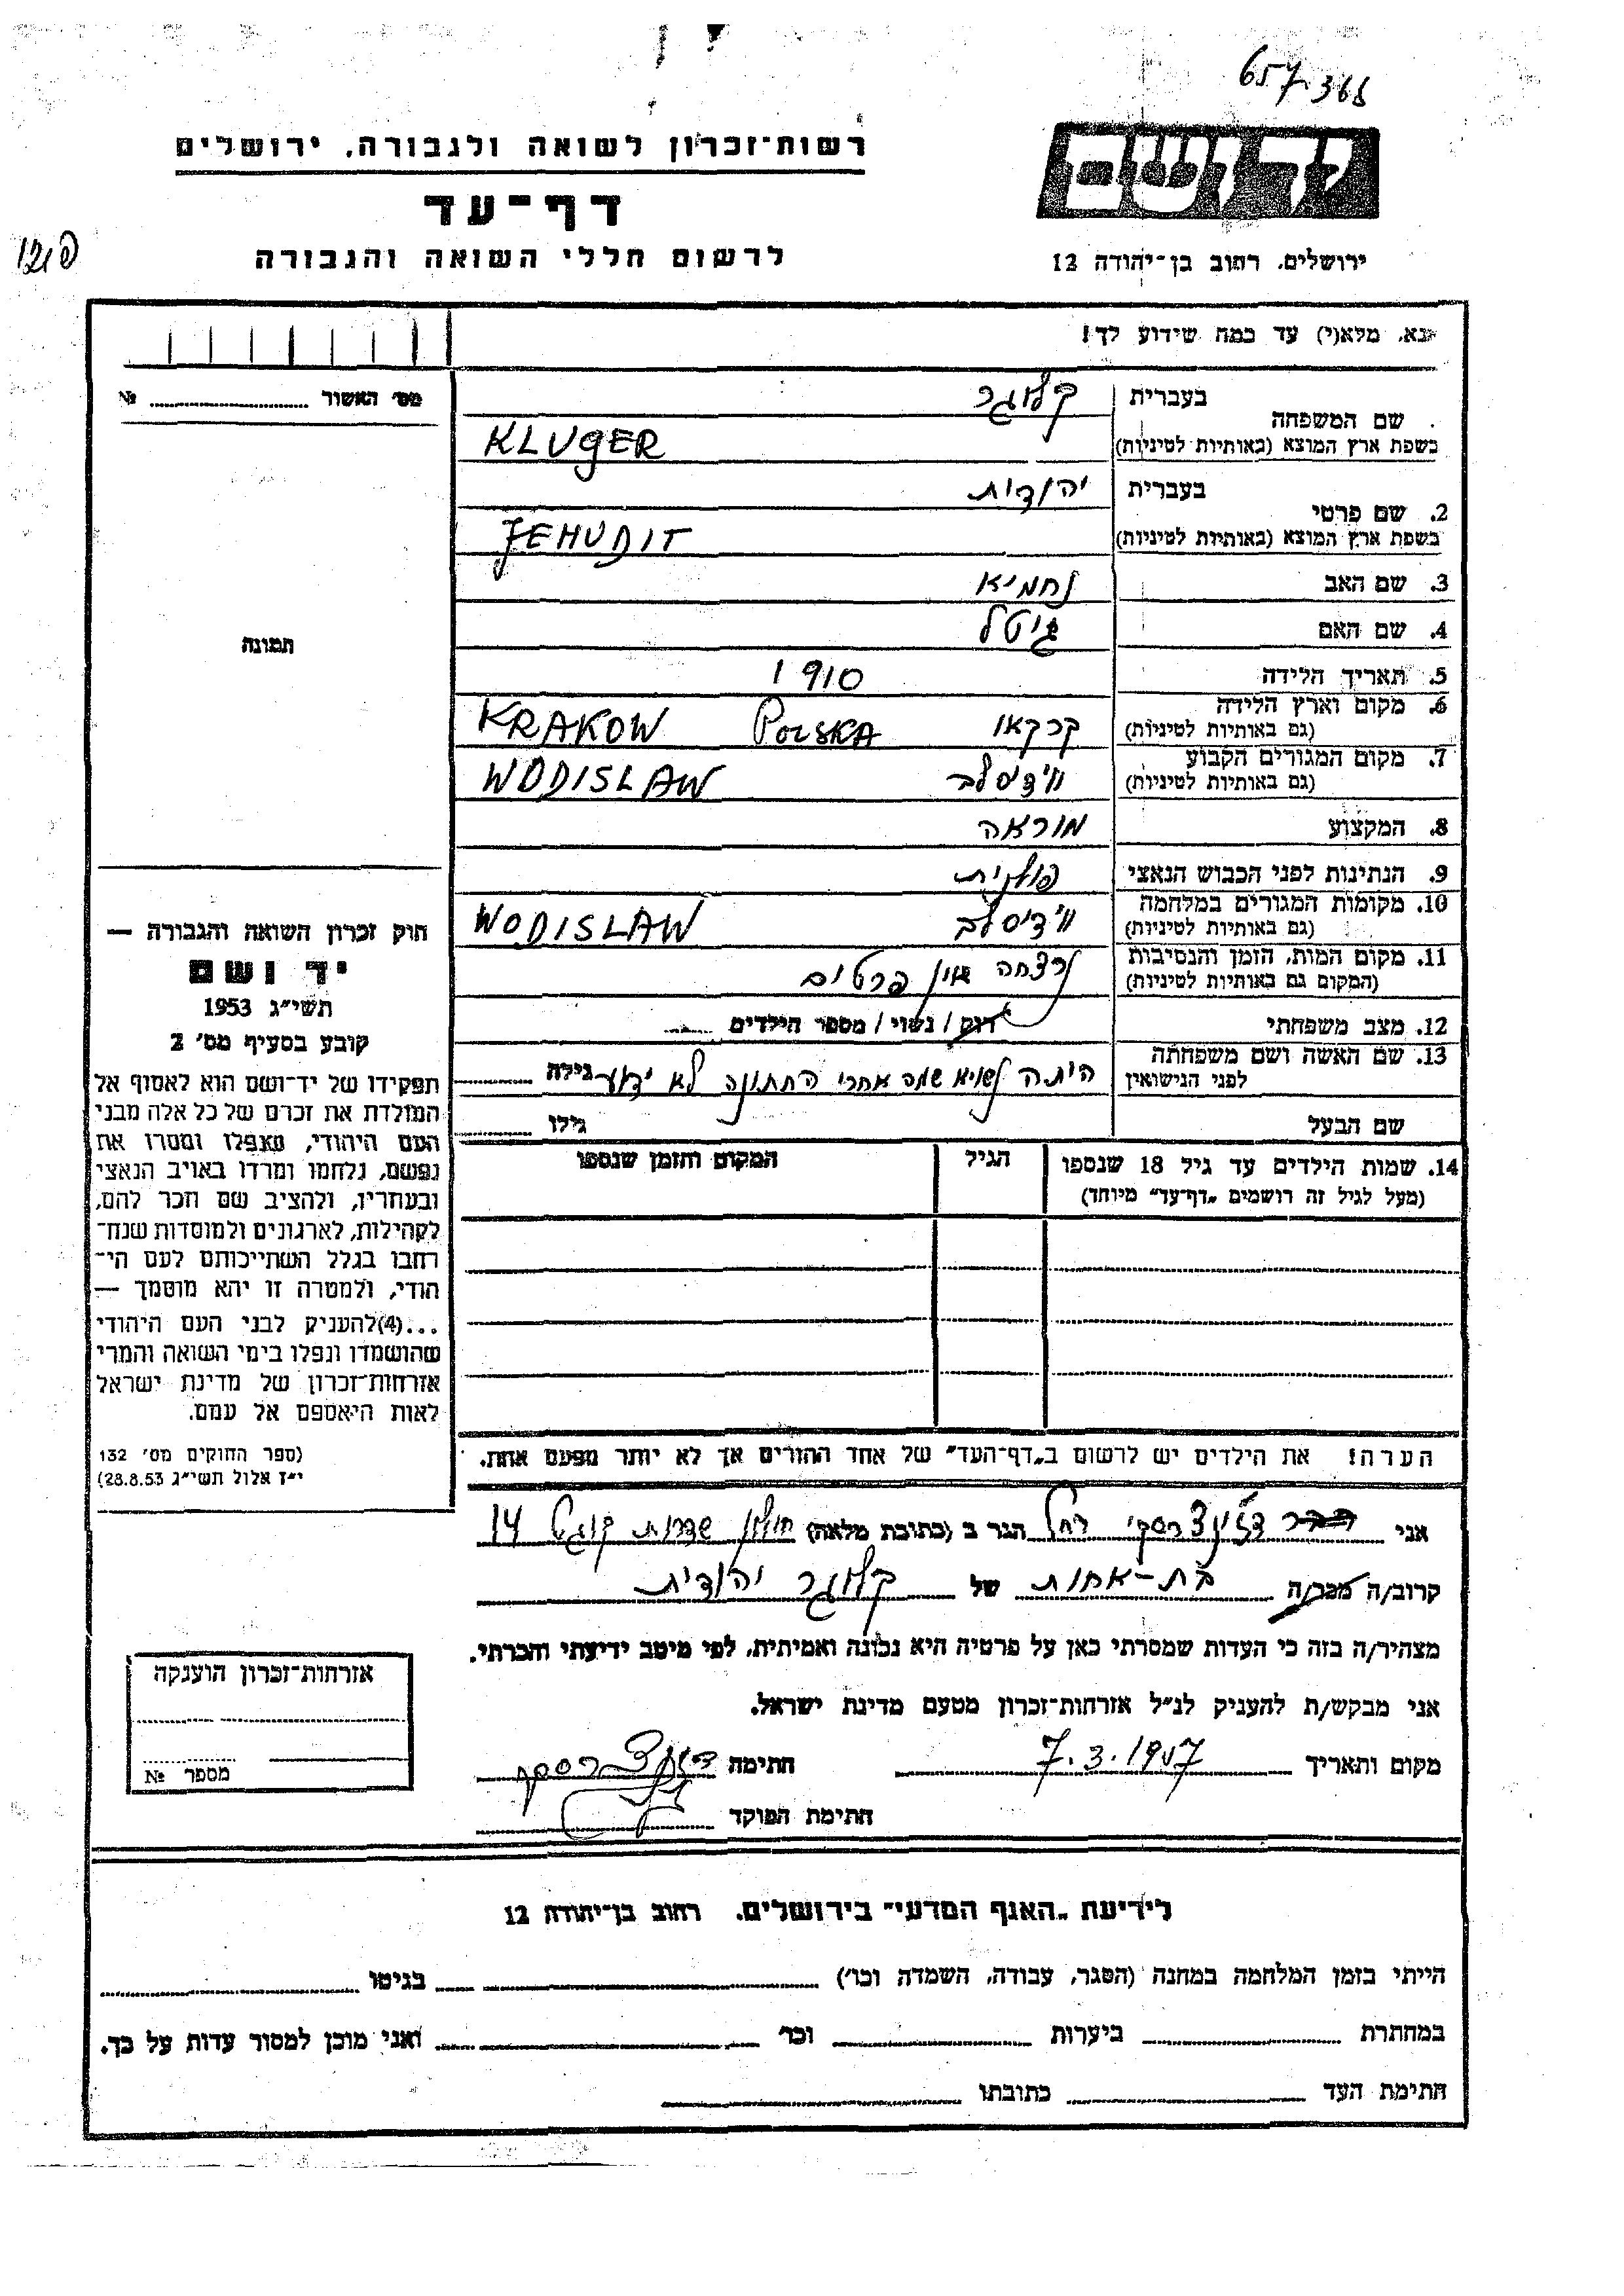 657 365
רשות־זכרון לשואה ולגבורה, ירושלים
יד ושם
דף־עד
לרשום חללי השואה והגבורה
ירושלים, רחוב בן־יהודה 12
נא, מלא(י) עד כמה שידוע לך!
מס׳ האשור № 
בעברית קלוגר
שם המשפחה
בשפת ארץ המוצא (באותיות לטיניות) KLUGER
בעברית יהודית
2. שם פרטי
בשפת ארץ המוצא (באותיות לטיניות) JEHUDIT
3. שם האב נחמיא
4. שם האם גיטל
תמונה
5. תאריך הלידה 1910
6. מקום וארץ הלידה (גם באותיות לטיניות) קרקאו POLSKA KRAKOW
7. מקום המגורים הקבוע (גם באותיות לטיניות) וידיסלב WODISLAW
8. המקצוע מוראה
9. הנתינות לפני הכבוש הנאצי פולנית
10. מקומות המגורים במלחמה (גם באותיות לטיניות) וידיסלב WODISLAW
11. מקום המות, הזמן והנסיבות (המקום גם באותיות לטיניות) נרצחה אין פרטים
12. מצב משפחתי רווק / נשוי / מספר הילדים
13. שם האשה ושם משפחתה לפני הנישואין היתה נשויא שמה אחרי החתונה לא ידוע גילה
שם הבעל גילו
14. שמות הילדים עד גיל 18 שנספו הגיל המקום והזמן שנספו
(מעל לגיל זה רושמים „דף־עד״ מיוחד)
חוק זכרון השואה והגבורה —
יד ושם
תשי״ג 1953
קובע בסעיף מס׳ 2
תפקידו של יד־ושם הוא לאסוף אל
המולדת את זכרם של כל אלה מבני
העם היהודי, שנפלו ומסרו את
נפשם, נלחמו ומרדו באויב הנאצי
ובעוזריו, ולהציב שם וזכר להם,
לקהילות, לארגונים ולמוסדות שנח־
רחבו בגלל השתייכותם לעם הי־
הודי, ולמטרה זו יהא מוסמך —
...(4)להעניק לבני העם היהודי
שהושמדו ונפלו בימי השואה והמרי
אזרחות־זכרון של מדינת ישראל
לאות היאספם אל עמם.
(ספר החוקים מס׳ 132
י״ז אלול תשי״ג 28.8.53)
הערה! את הילדים יש לרשום ב„דף־העד״ של אחד ההורים אך לא יותר מפעם אחת.
אני רחל הגר ב (כתובת מלאה) חולון שדרות קוגל 14
קרוב/ה מכר/ה בת-אחות של קלוגר יהודית
מצהיר/ה בזה כי העדות שמסרתי כאן על פרטיה היא נכונה ואמיתית, לפי מיטב ידיעתי והכרתי.
אני מבקש/ת להעניק לנ״ל אזרחות־זכרון מטעם מדינת ישראל.
מקום ותאריך 7.3.1957 חתימה
חתימת הפוקד
אזרחות־זכרון הוענקה
מספר №
לידיעת „האגף המדעי״ בירושלים, רחוב בן־יהודה 12
הייתי בזמן המלחמה במחנה (הסגר, עבודה, השמדה וכו׳) בגיטו
במחתרת ביערות וכו׳ ואני מוכן למסור עדות על כך.
חתימת העד כתובתו